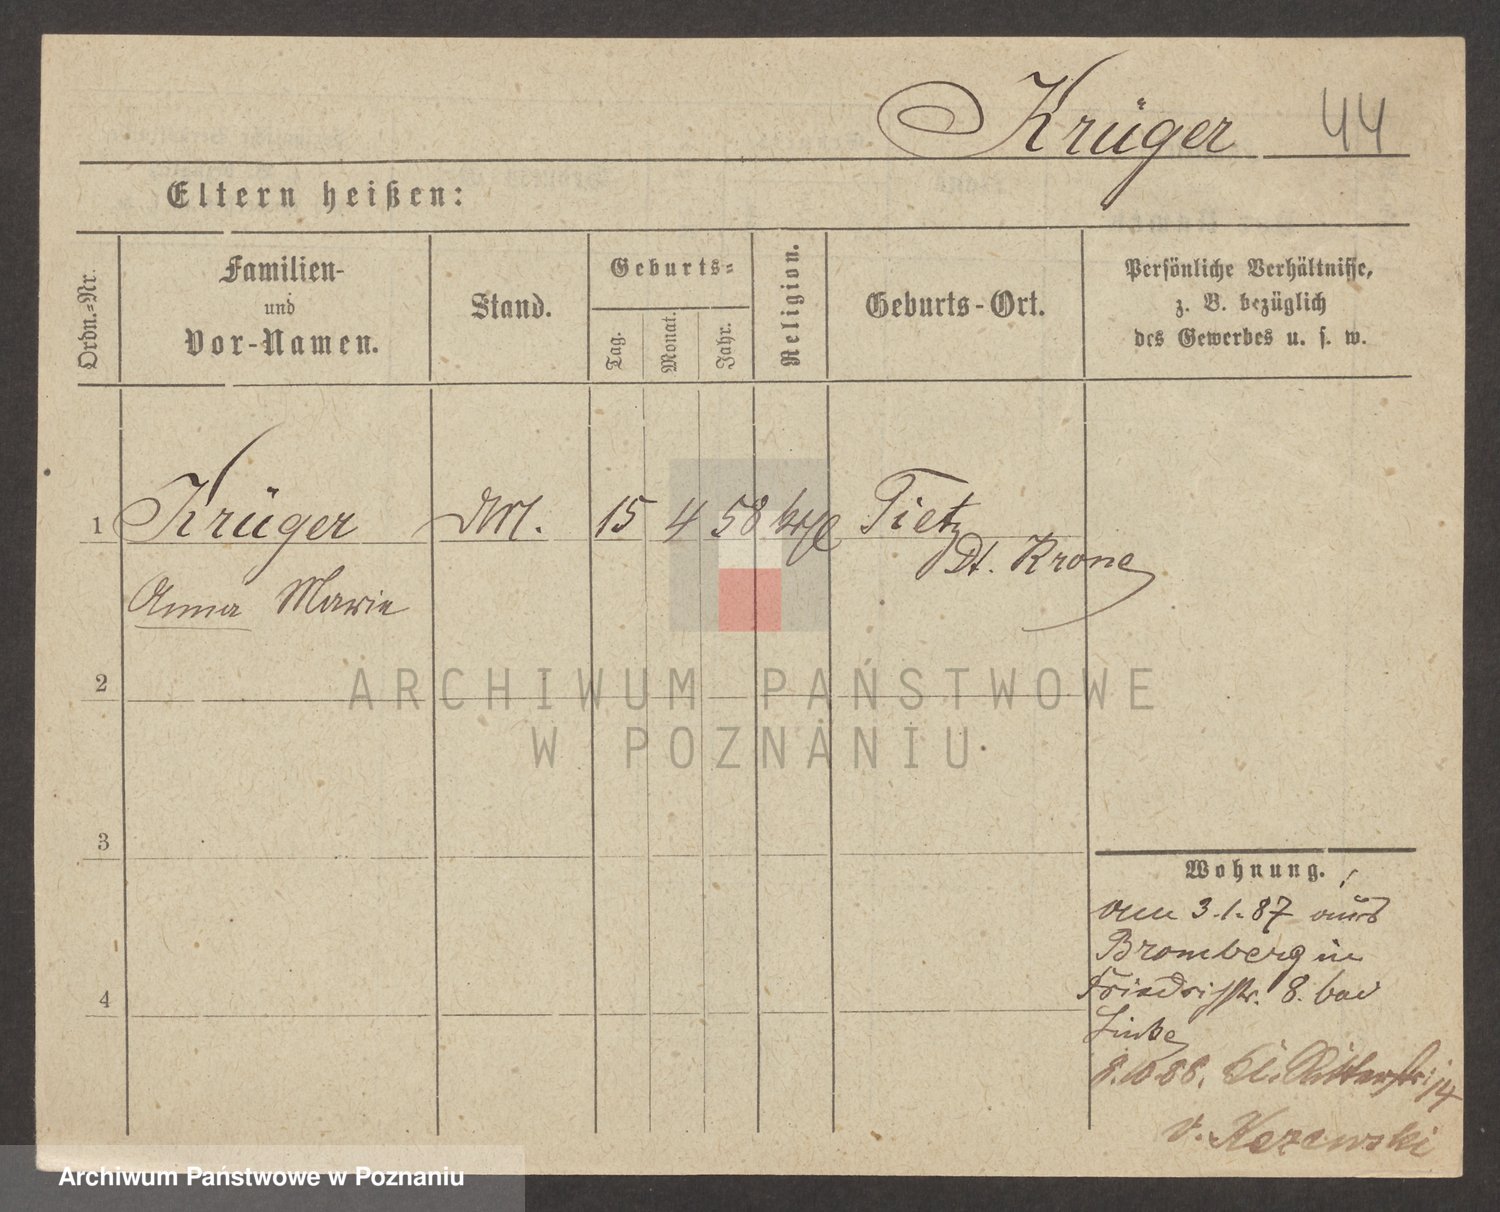 Krüger 44
Eltern heißen:
Ordn.-Nr.
Familien-
und
Vor-Namen.
Stand.
Geburts-
Tag.
Monat.
Jahr.
Religion.
Geburts-Ort.
Persönliche Verhältnisse,
z. B. bezüglich
des Gewerbes u. s. w.
1 Krüger 15 4 58 Tietz
Dt. Krone
Anna Marie
2
3
4
ARCHIWUM PAŃSTWOWE
W POZNANIU
Wohnung.
3.1.87 aus
Bromberg in
Friedrichstr. 8. bei
Linke
8.10.88. Kl. Ritterstr. 14
v. Kezewski
Archiwum Państwowe w Poznaniu